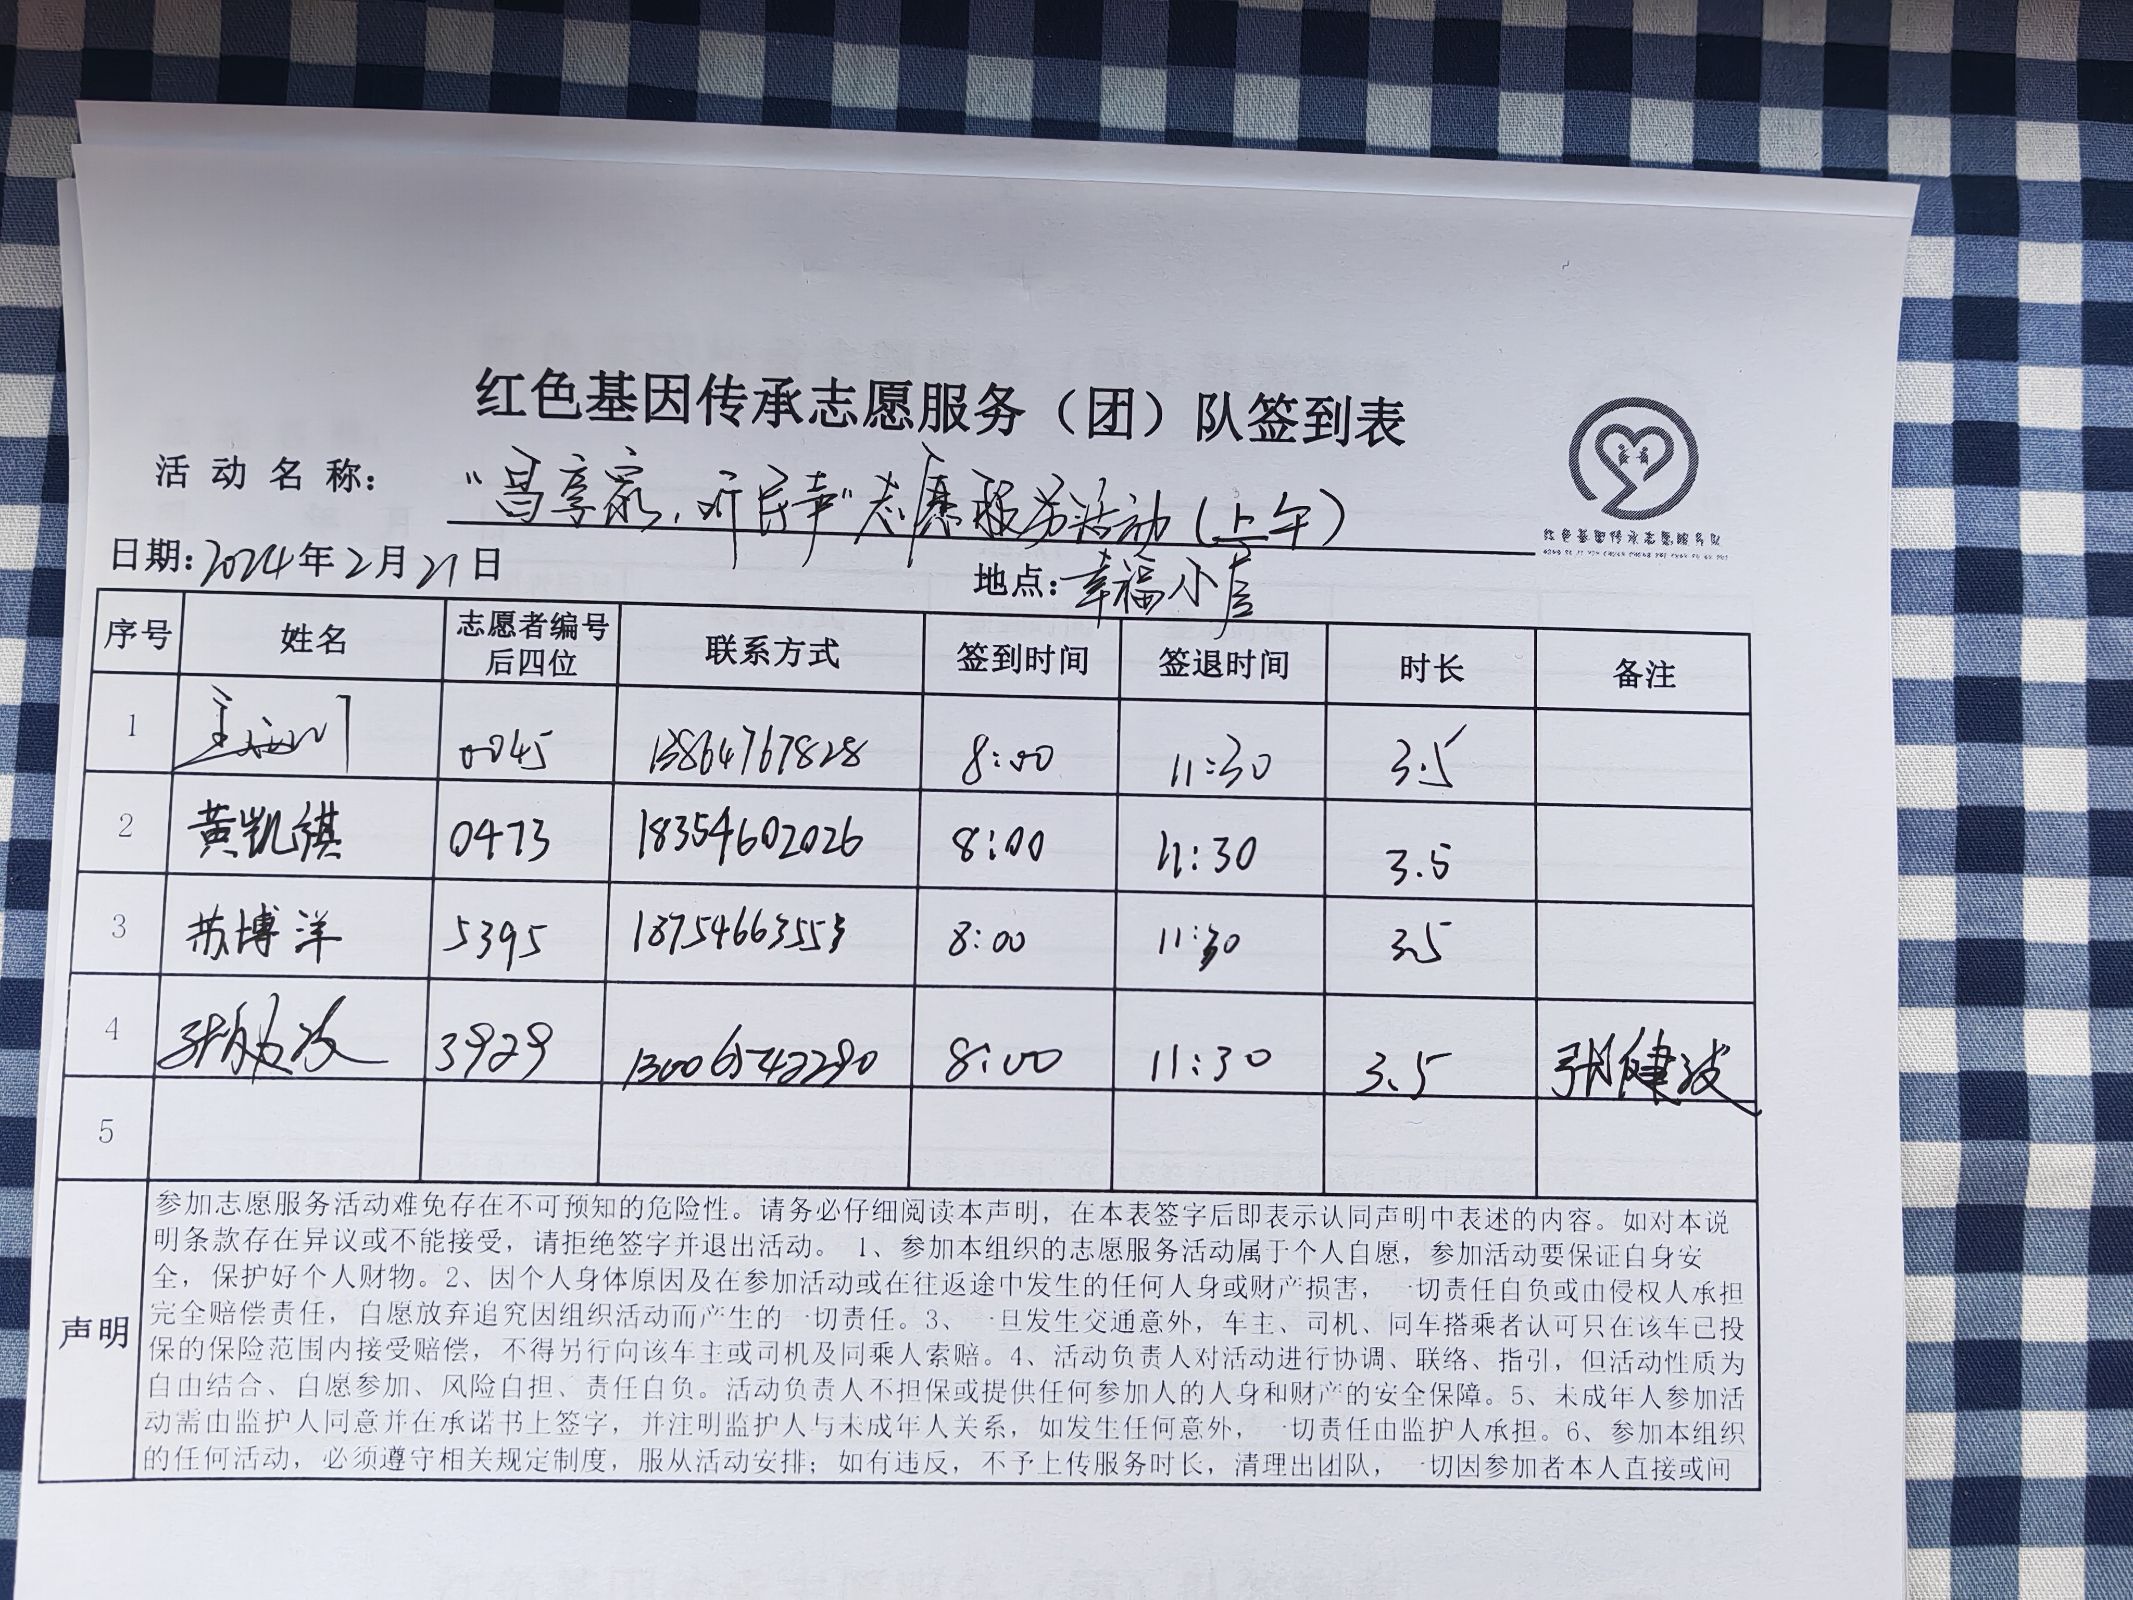 红色基因传承志愿服务（团）队签到表
活动名称：“昌享家，听民声”志愿服务活动（上午）
红色基因传承志愿服务队
日期：2024年2月21日 地点：幸福小店
序号 姓名 志愿者编号后四位 联系方式 签到时间 签退时间 时长 备注
1 0045 13864767828 8:00 11:30 3.5
2 黄凯祺 0473 18354602026 8:00 11:30 3.5
3 苏博洋 5395 18754663553 8:00 11:30 3.5
4 3929 13006542290 8:00 11:30 3.5 张健波
5
声明
参加志愿服务活动难免存在不可预知的危险性。请务必仔细阅读本声明，在本表签字后即表示认同声明中表述的内容。如对本说
明条款存在异议或不能接受，请拒绝签字并退出活动。 1、参加本组织的志愿服务活动属于个人自愿，参加活动要保证自身安
全，保护好个人财物。2、因个人身体原因及在参加活动或在往返途中发生的任何人身或财产损害，一切责任自负或由侵权人承担
完全赔偿责任，自愿放弃追究因组织活动而产生的一切责任。3、一旦发生交通意外，车主、司机、同车搭乘者认可只在该车已投
保的保险范围内接受赔偿，不得另行向该车主或司机及同乘人索赔。4、活动负责人对活动进行协调、联络、指引，但活动性质为
自由结合、自愿参加、风险自担、责任自负。活动负责人不担保或提供任何参加人的人身和财产的安全保障。5、未成年人参加活
动需由监护人同意并在承诺书上签字，并注明监护人与未成年人关系，如发生任何意外，一切责任由监护人承担。6、参加本组织
的任何活动，必须遵守相关规定制度，服从活动安排；如有违反，不予上传服务时长，清理出团队，一切因参加者本人直接或间